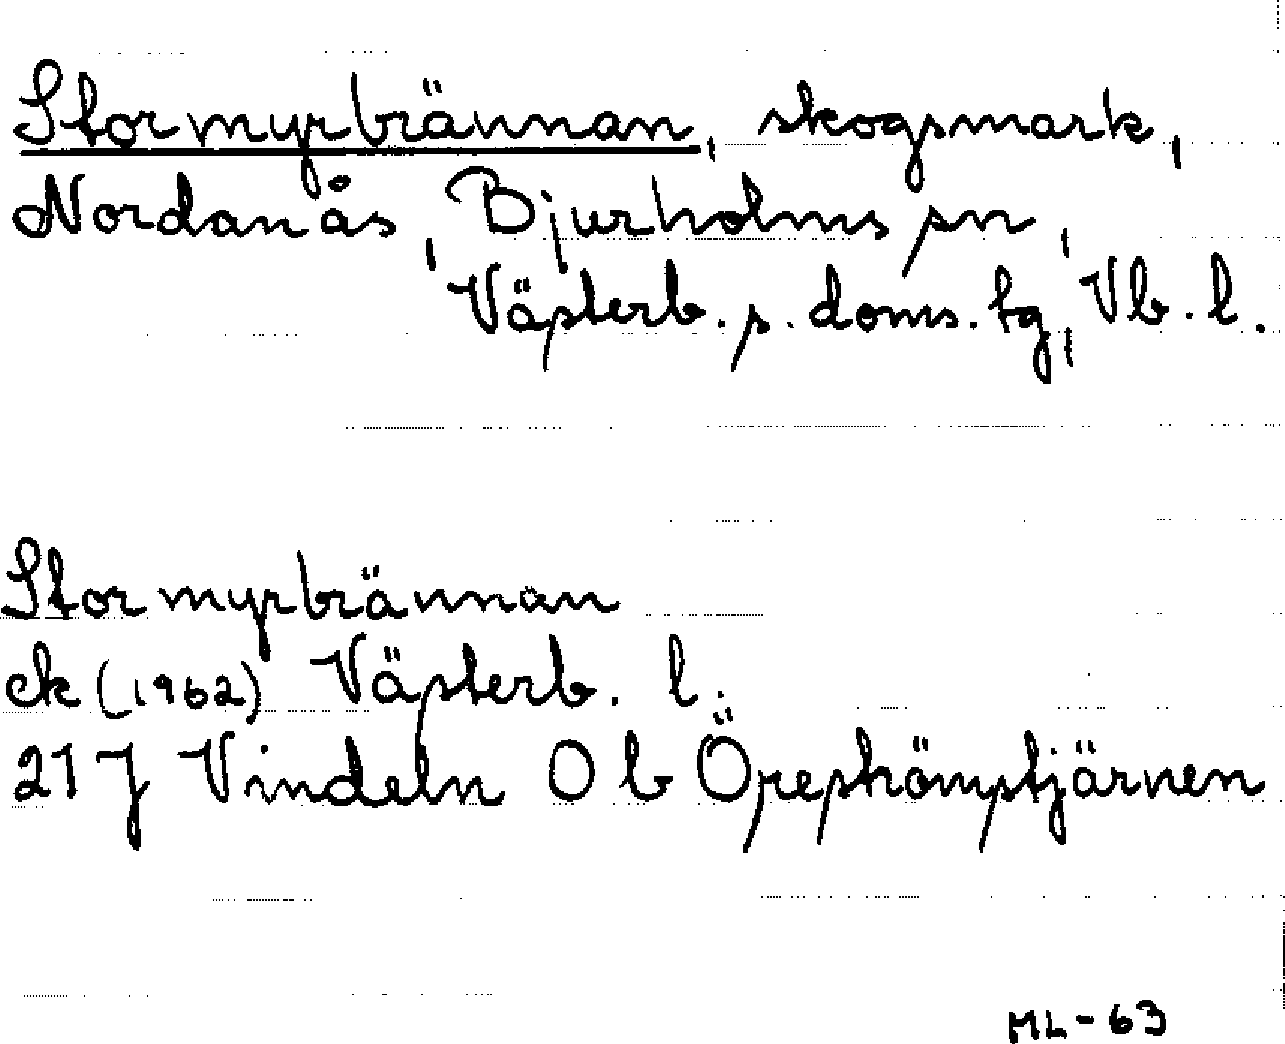 Stormyrbrännan, skogsmark,
Nordanås, Bjurholms sn,
Västerb. s. doms. tg, Vb. l.
Stormyrbrännan
ek (1962) Västerb. l.
21 J Vindeln 0 b
ML-63